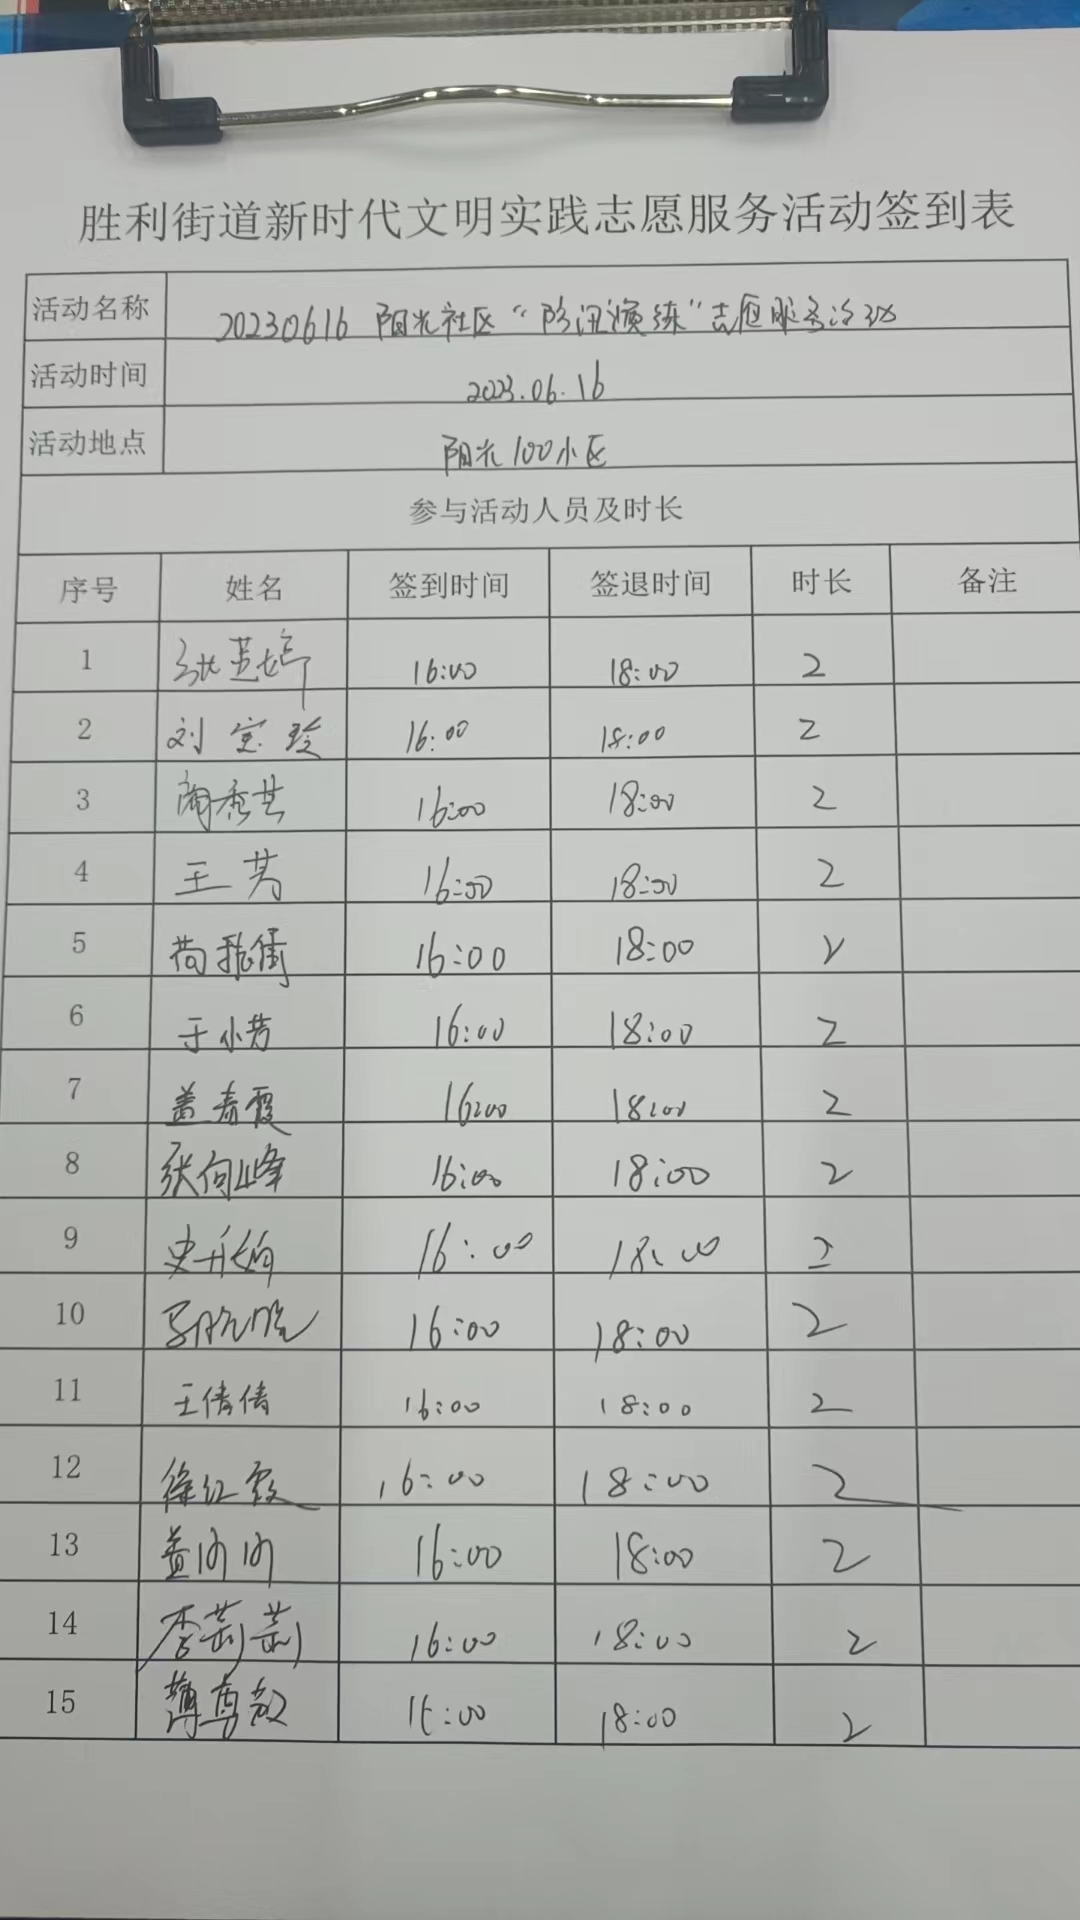 胜利街道新时代文明实践志愿服务活动签到表
活动名称 20230616 阳光社区“防汛演练”志愿服务活动
活动时间 2023.06.16
活动地点 阳光100小区
参与活动人员及时长
序号 姓名 签到时间 签退时间 时长 备注
1 16:00 18:00 2
2 刘宝玲 16:00 18:00 2
3 16:00 18:00 2
4 王芳 16:00 18:00 2
5 16:00 18:00 2
6 于小芳 16:00 18:00 2
7 盖春霞 16:00 18:00 2
8 张向峰 16:00 18:00 2
9 16:00 18:00 2
10 16:00 18:00 2
11 王倩倩 16:00 18:00 2
12 徐红霞 16:00 18:00 2
13 16:00 18:00 2
14 李莉莉 16:00 18:00 2
15 16:00 18:00 2